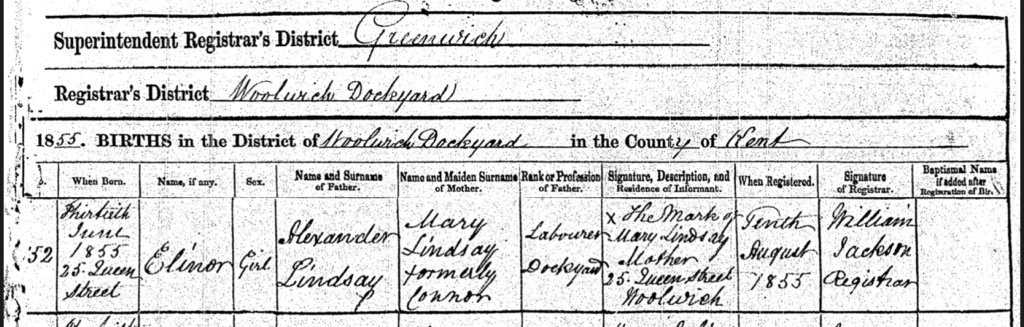 Superintendent Registrar's District Greenwich
Registrar's District Woolwich Dockyard
1855. BIRTHS in the District of Woolwich Dockyard in the County of Kent
When Born.
Name, if any.
Sex.
Name and Surname
of Father.
Name and Maiden Surname
of Mother.
Rank or Profession
of Father.
Signature, Description, and
Residence of Informant.
When Registered.
Signature
of Registrar.
Baptismal Name
if added after
Registration of Birth
52
Thirtieth
June
1855
25 Queen
Street
Elinor
Girl
Alexander
Lindsay
Mary
Lindsay
formerly
Connor
Labourer
Dockyard
X The Mark of
Mary Lindsay
Mother
25 Queen Street
Woolwich
Tenth
August
1855
William
Jackson
Registrar